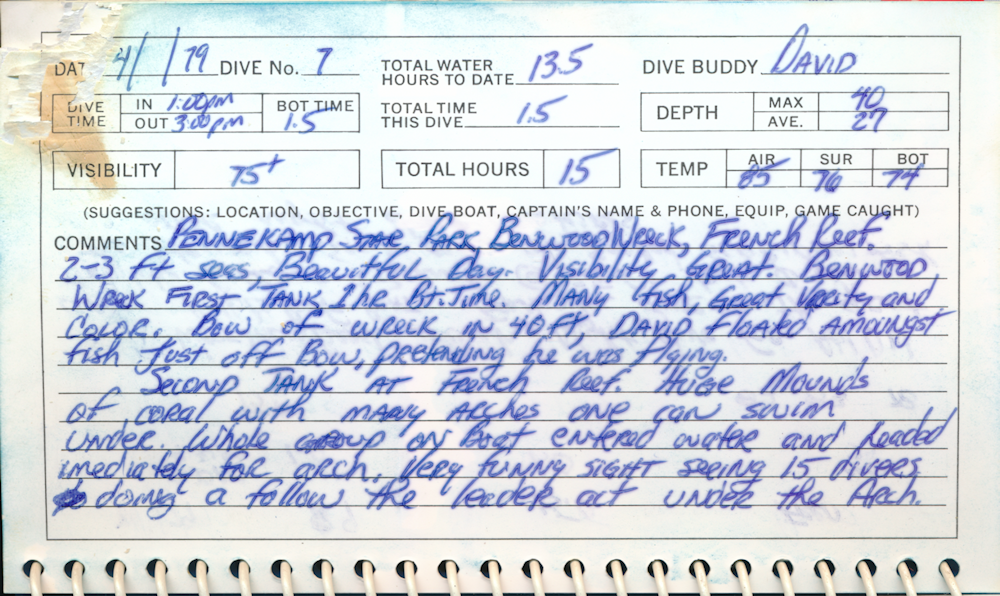 DAT 4/ /79 DIVE No. 7 TOTAL WATER HOURS TO DATE 13.5 DIVE BUDDY DAVID
DIVE TIME IN 1:00pm OUT 3:00pm BOT TIME 1.5 TOTAL TIME THIS DIVE 1.5 DEPTH MAX 40 AVE. 27
VISIBILITY 75+ TOTAL HOURS 15 TEMP AIR 85 SUR 76 BOT 74
(SUGGESTIONS: LOCATION, OBJECTIVE, DIVE BOAT, CAPTAIN'S NAME & PHONE, EQUIP, GAME CAUGHT)
COMMENTS PENNEKAMP STAR PARK, BENWOOD Wreck, French Reef.
2-3 ft seas, Beautful Day. Visibility Great. BENWOOD
Wreck First TANK 1 hr Bt. Time. MANY fish, Great Verity and
COLOR. Bow of wreck in 40 ft, DAVID Floated Amoungst
fish Just off Bow, pretending he was flying.
Second TANK AT French Reef. Huge Mounds
of coral with many Arches one can swim
under. Whole group on Boat entered water and headed
imediately for arch. Very funny sight seeing 15 divers
doing a follow the leader act under the Arch.